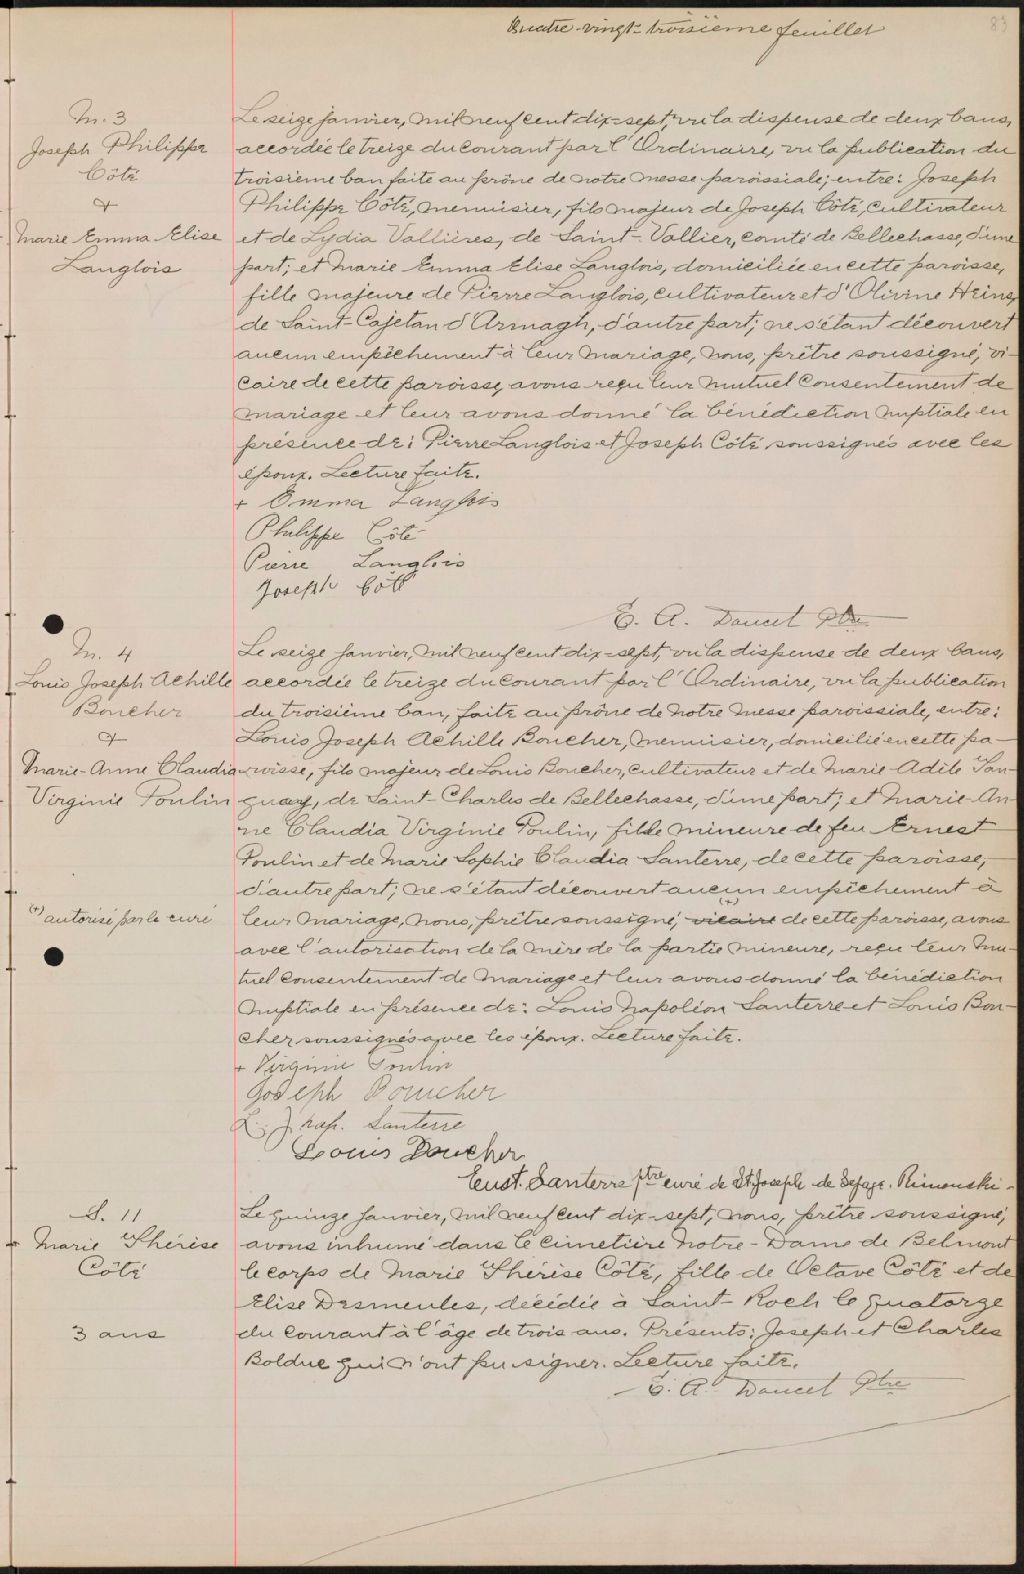 Quatre-vingt-troisième feuillet
83
M. 3
Joseph Philippe
Côté
&
Marie Emma Elise
Langlois
Le seize janvier, mil neuf cent dix-sept, vu la dispense de deux bans,
accordée le treize du courant par l'Ordinaire, vu la publication du
troisième ban faite au prône de notre messe paroissiale; entre: Joseph
Philippe Côté, menuisier, fils majeur de Joseph Côté, cultivateur
et de Lydia Vallières, de Saint-Vallier, comté de Bellechasse, d'une
part; et Marie Emma Elise Langlois, domiciliée en cette paroisse,
fille majeure de Pierre Langlois, cultivateur et d'Olivine Heins,
de Saint-Cajetan d'Armagh, d'autre part; ne s'étant découvert
aucun empêchement à leur mariage, nous, prêtre soussigné, vi-
caire de cette paroisse, avons reçu leur mutuel consentement de
mariage et leur avons donné la bénédiction nuptiale en
présence de: Pierre Langlois et Joseph Côté soussignés avec les
époux. Lecture faite.
+ Emma Langlois
Philippe Côté
Pierre Langlois
Joseph Côté
E. A. Doucet Ptre
M. 4
Louis Joseph Achille
Boucher
&
Marie-Anne Claudia
Virginie Poulin
(+) autorisé par le curé
Le seize janvier, mil neuf cent dix-sept, vu la dispense de deux bans,
accordée le treize du courant par l'Ordinaire, vu la publication
du troisième ban, faite au prône de notre messe paroissiale, entre:
Louis Joseph Achille Boucher, menuisier, domicilié en cette pa-
roisse, fils majeur de Louis Boucher, cultivateur et de Marie-Adèle Tan-
guay, de Saint-Charles de Bellechasse, d'une part; et Marie-An-
ne Claudia Virginie Poulin, fille mineure de feu Ernest
Poulin et de Marie Sophie Claudia Santerre, de cette paroisse,
d'autre part; ne s'étant découvert aucun empêchement à
leur mariage, nous, prêtre soussigné, vicaire (+) de cette paroisse, avons
avec l'autorisation de la mère de la partie mineure, reçu leur mu-
tuel consentement de mariage et leur avons donné la bénédiction
nuptiale en présence de: Louis Napoléon Santerre et Louis Bou-
cher soussignés avec les époux. Lecture faite.
+ Virginie Poulin
Joseph Boucher
L. J. Nap. Santerre
Louis Boucher
Eust. Santerre ptre curé de St Joseph de Lepage. Rimouski.
S. 11
Marie Thérèse
Côté
3 ans
Le quinze janvier, mil neuf cent dix-sept, nous, prêtre soussigné,
avons inhumé dans le cimetière Notre-Dame de Belmont
le corps de Marie Thérèse Côté, fille de Octave Côté et de
Elise Desmeules, décédée à Saint-Roch le quatorze
du courant à l'âge de trois ans. Présents: Joseph et Charles
Bolduc qui n'ont pu signer. Lecture faite.
E. A. Doucet Ptre